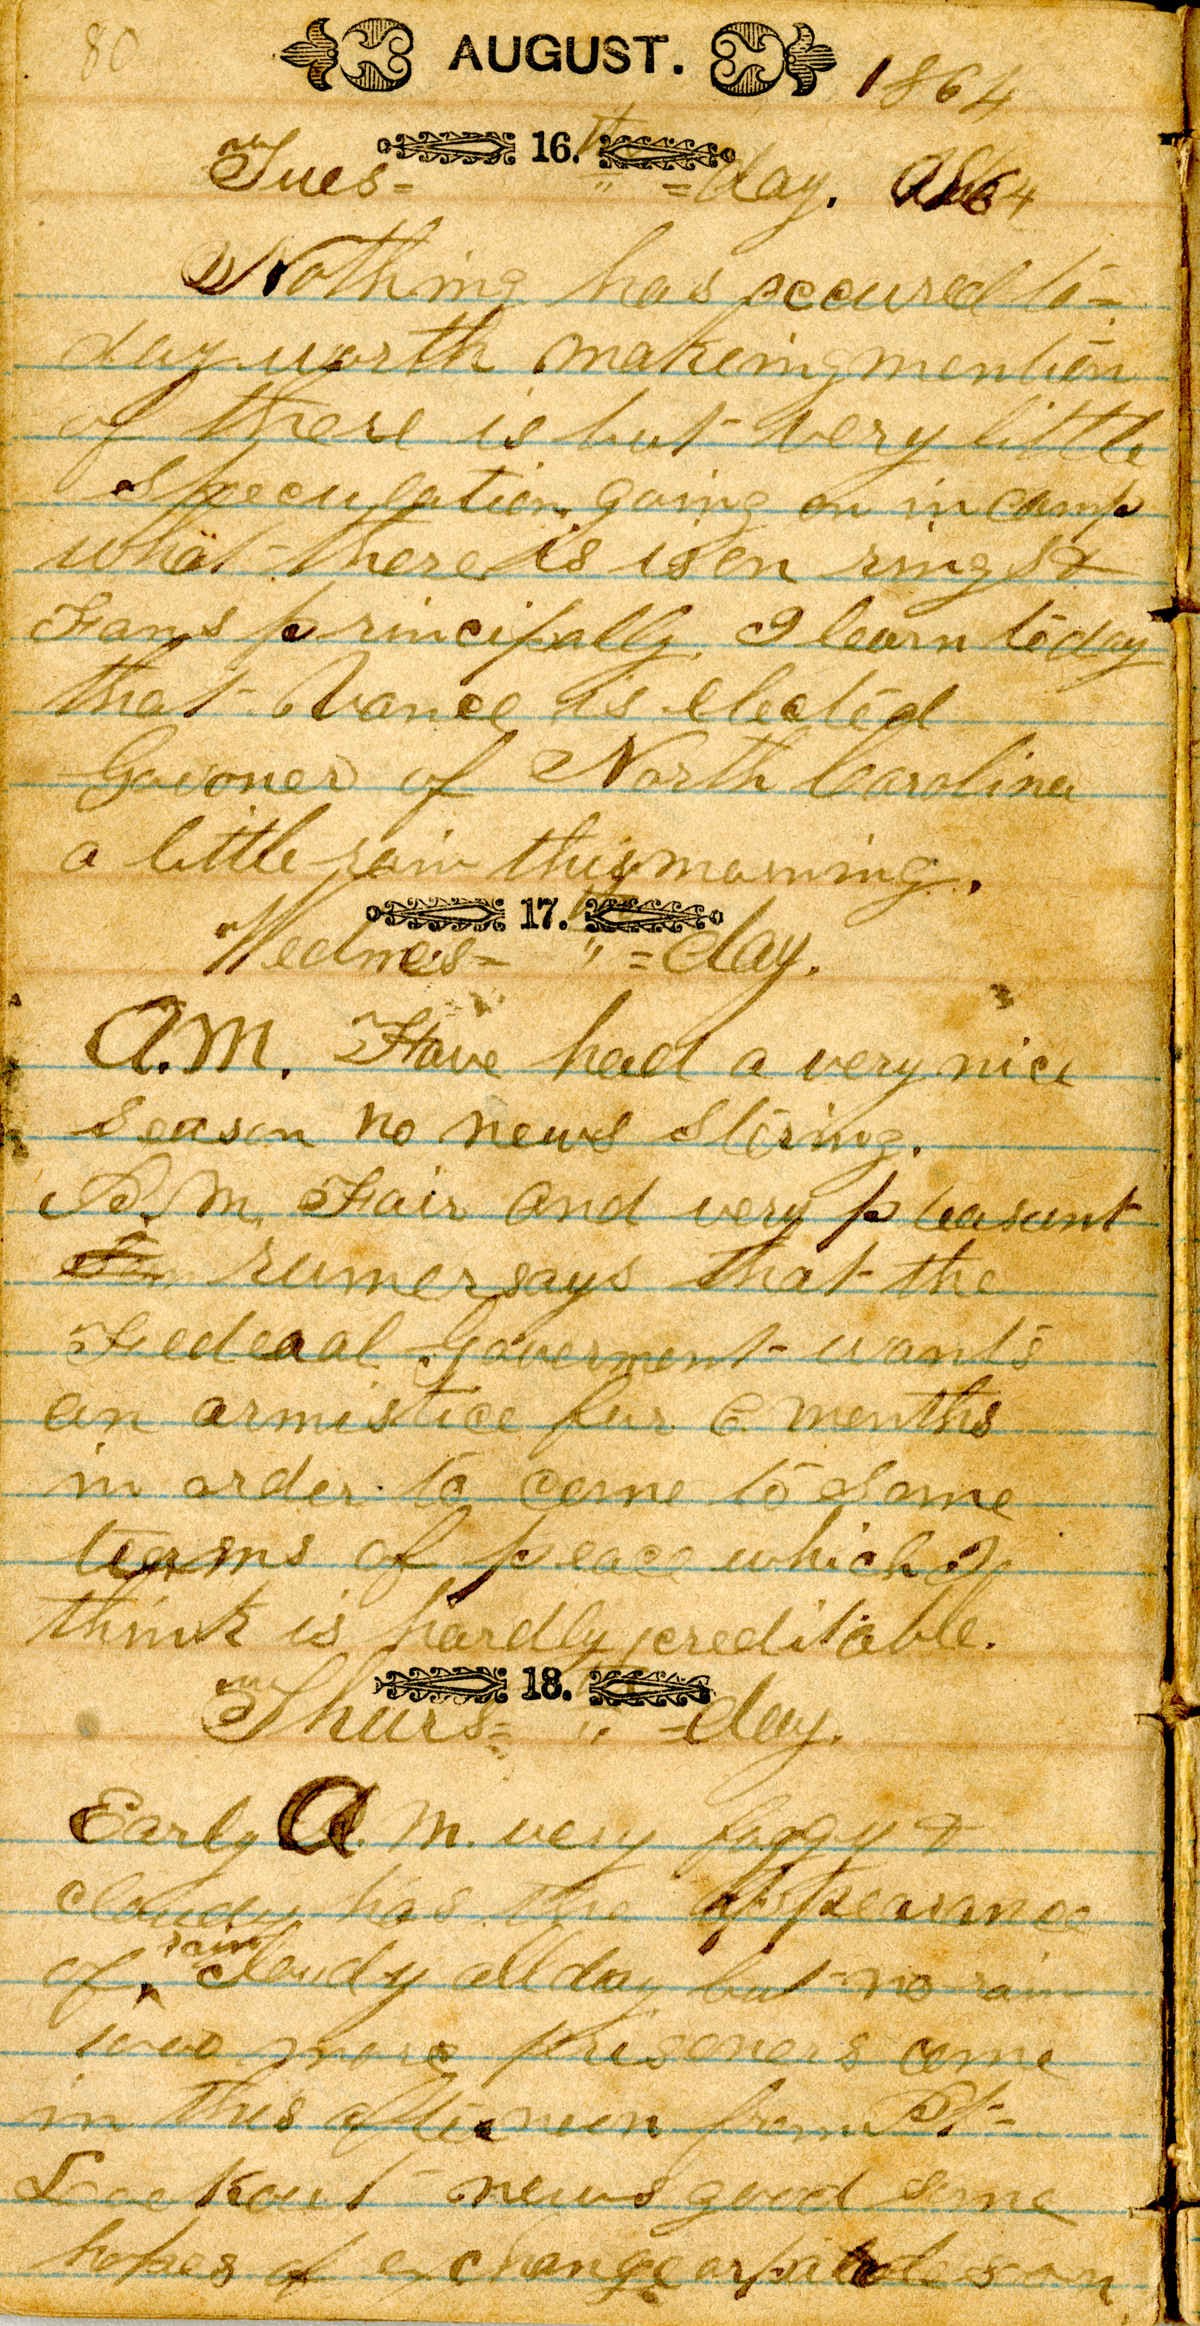 80
AUGUST. 1864
16.th
Tues= " =day. 1864
Nothing has occured to=
day worth makeing mention
of there is but very little
speculation going on in camp
what there is is on rings &
Fans principally I learn today
that Vance is elected
Govoner of North Carolina
a little rain this morning.
17.th
Wednes= " =day.
A.M. Have had a very nice
season no news stiring.
P.M. Fair and very pleasant
rumer says that the
Fedeaal Goverment wants
an armistice fur 6 months
in order to come to some
terms of peace which I
think is hardly creditable.
18.th
Thurs= " =day.
Early A.M. very foggy &
cloudy has the appearance
of rain cloudy all day but no rain
two more prisoners come
in this afternoon from Pt=
Lookout news good some
hopes of exchange or parole soon